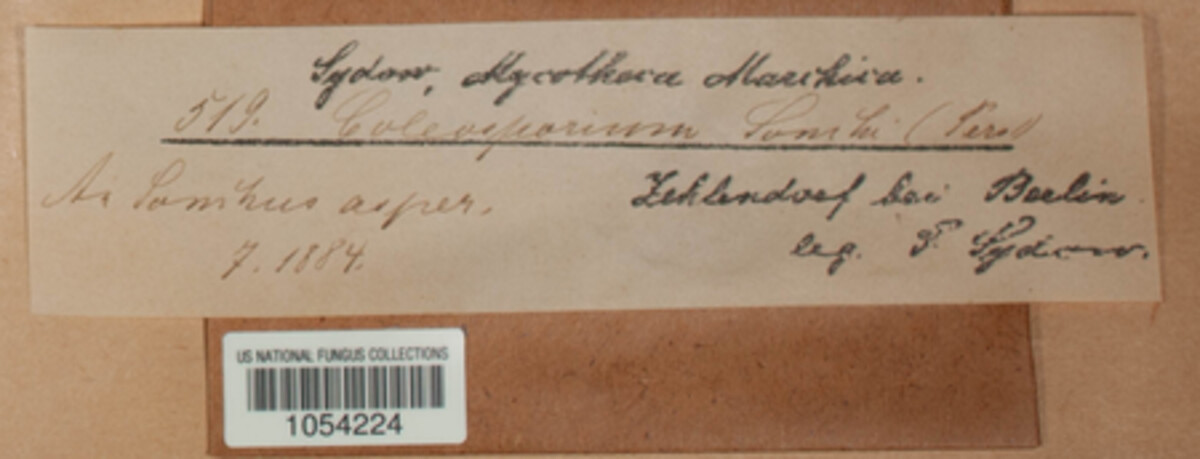 Sydow, Mycotheca Marchica.
519. Coleosporium Sonchi (Pers.)
An Sonchus asper.
7. 1884.
Zehlendorf bei Berlin.
leg. P. Sydow.
US NATIONAL FUNGUS COLLECTIONS
1054224